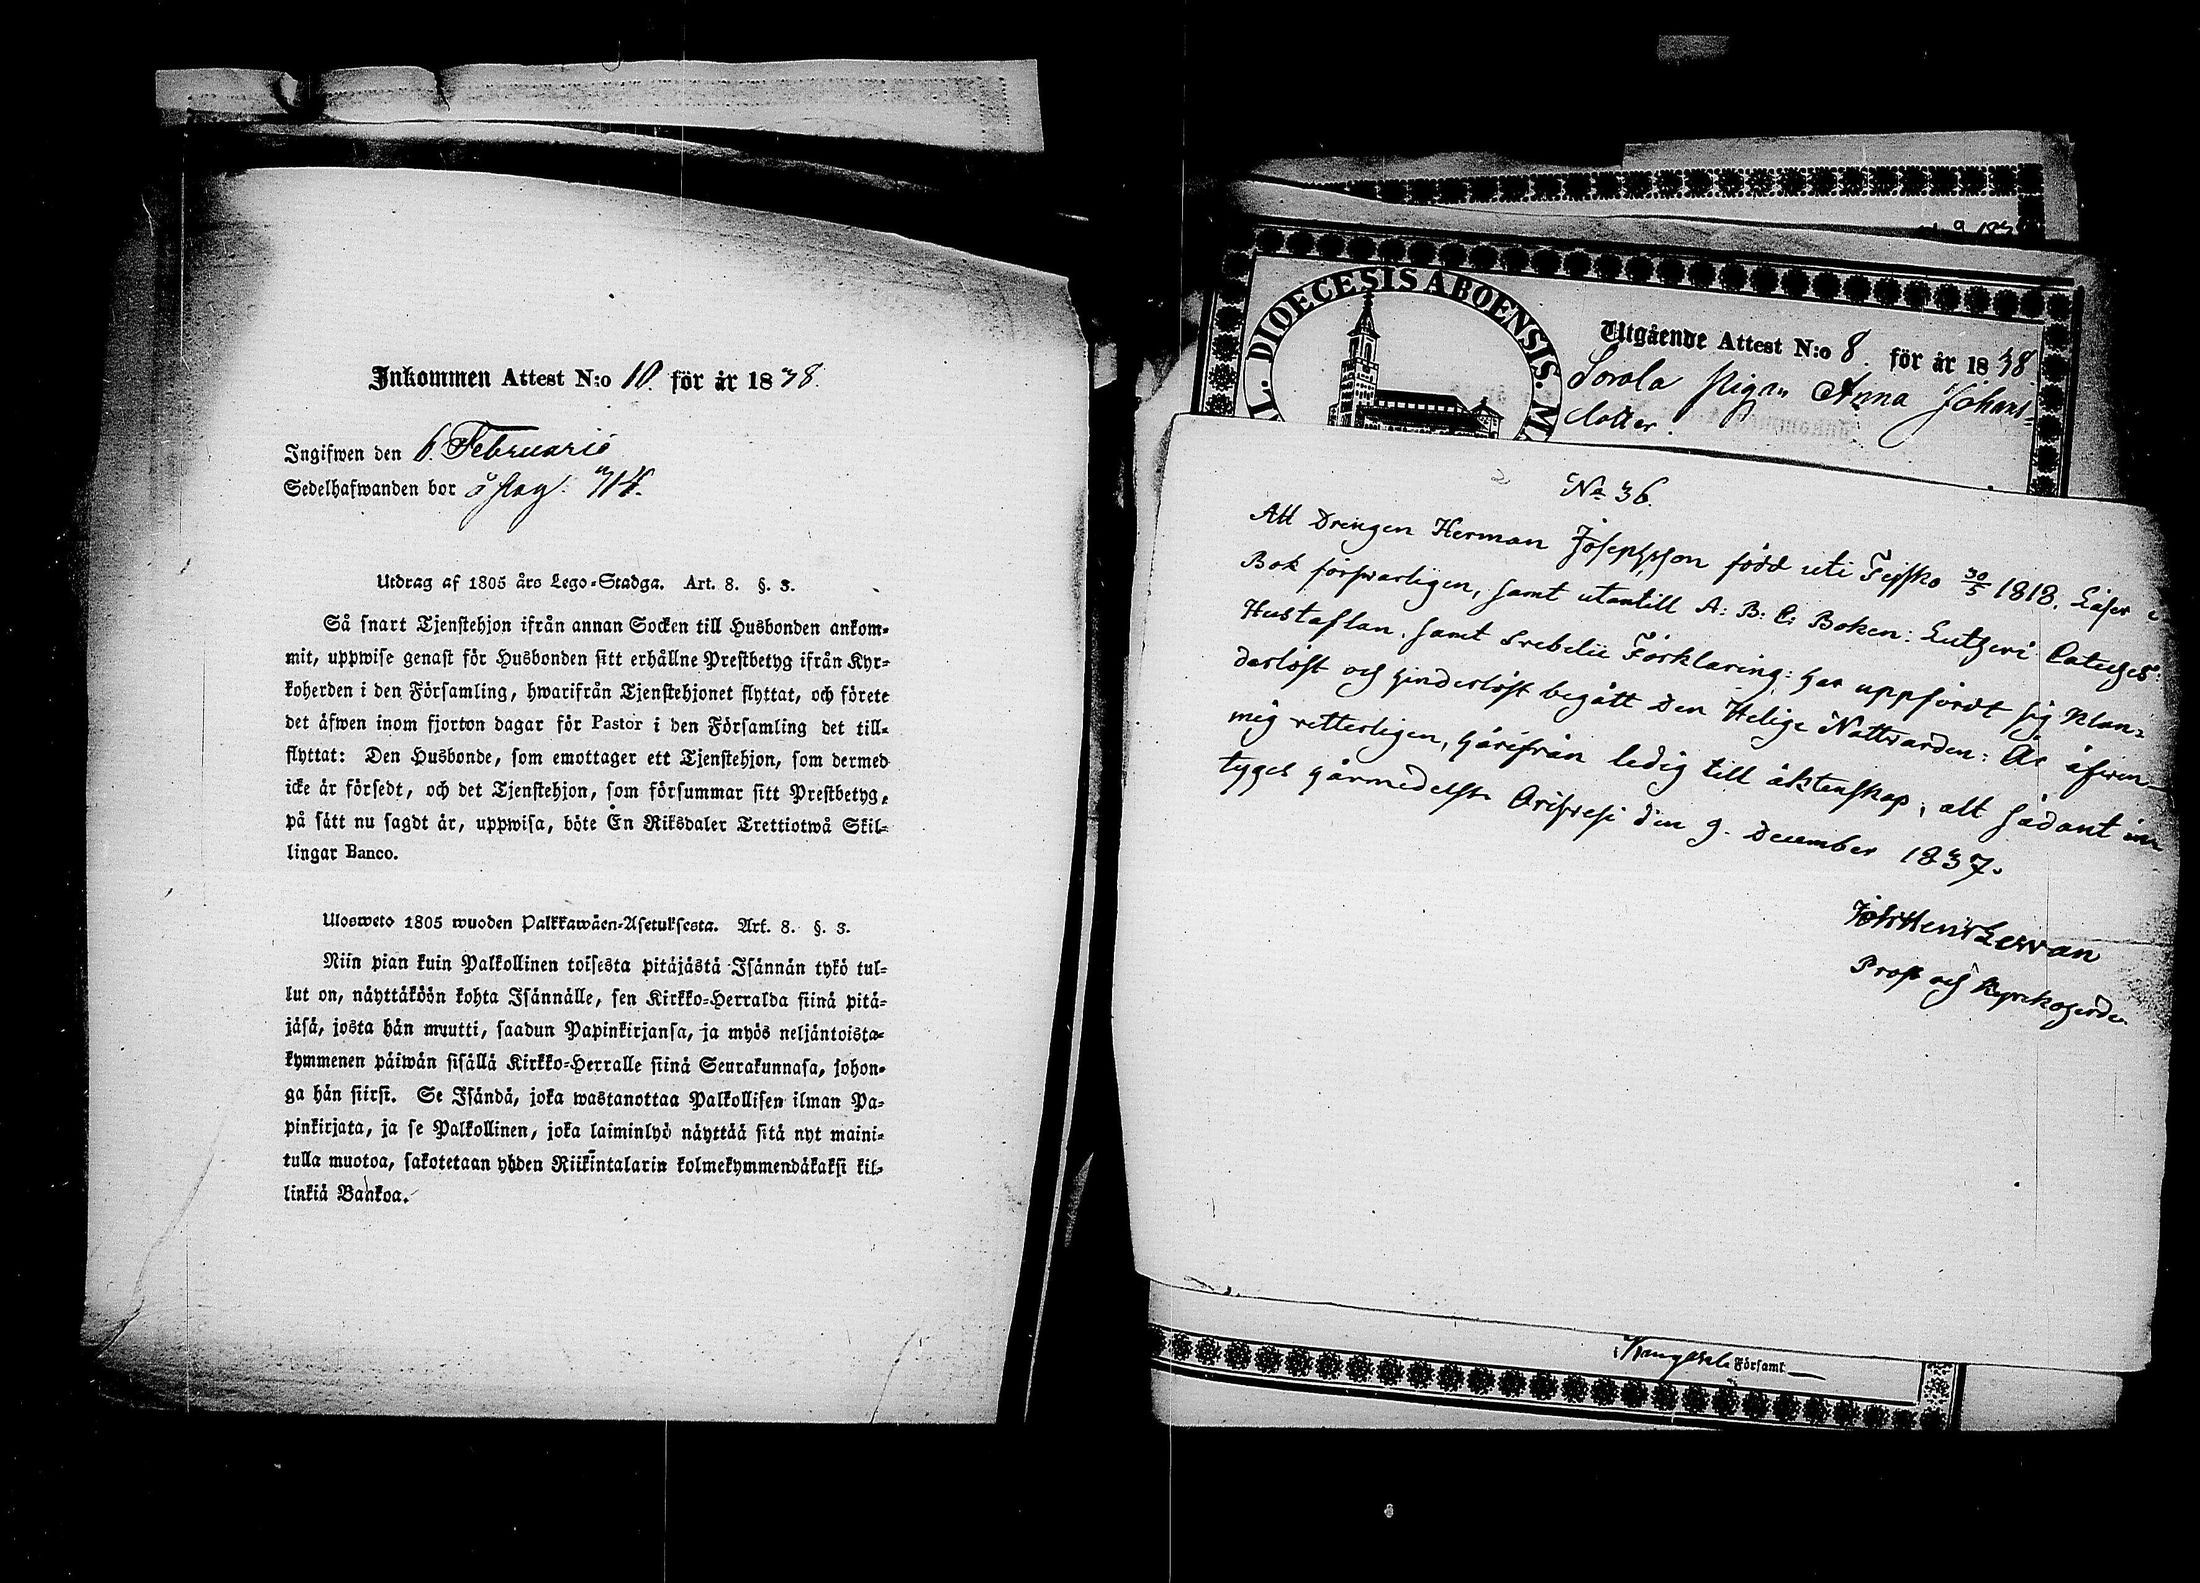 Inkommen Attest N:o 10. för år 1838.
Ingifwen den 6. Februarie
Sedelhafwanden bor å stag. 714.
Utdrag af 1805 års Lego-Stadga. Art. 8. §. 3.
Så snart Tjenstehjon ifrån annan Socken till Husbonden ankom-
mit, uppwise genast för Husbonden sitt erhållne Prestbetyg ifrån Kyr-
koherden i den Församling, hwarifrån Tjenstehjonet flyttat, och förete
det äfwen inom fjorton dagar för Pastor i den Församling det till-
flyttat: Den Husbonde, som emottager ett Tjenstehjon, som dermed
icke är försedt, och det Tjenstehjon, som försummar sitt Prestbetyg,
på sätt nu sagdt är, uppwisa, böte En Riksdaler Trettiotwå Skil-
lingar Banco.
Ulosweto 1805 wuoden Palkkawäen-Asetuksesta. Art. 8. §. 3.
Niin pian kuin Palkollinen toisesta pitäjästä Isännän tykö tul-
lut on, näyttäköön kohta Isännälle, sen Kirkko-Herralda siinä pitä-
jäsä, josta hän muutti, saadun Papinkirjansa, ja myös neljäntoista-
kymmenen päiwän sisällä Kirkko-Herralle siinä Seurakunnasa, johon-
ga hän siirsi. Se Isändä, joka wastanottaa Palkollisen ilman Pa-
pinkirjata, ja se Palkollinen, joka laiminlyö näyttää sitä nyt maini-
tulla muotoa, sakotetaan yhden Riikintalarin kolmekymmendäkaksi kil-
linkiä Bankoa.
L. DIOECESIS ABOENSIS. M
Utgående Attest N:o 8. för år 1838
Sorola Pigan Anna Johans-
dotter.
No 36.
Att Drengen Herman Josephsson född uti Fejsko 30/5 1818. Läser i
Bok försvarligen, samt utantill A: B: C: Boken: Lutheri Cateches:
Hustaflan, samt Svebelii Förklaring: har uppfördt sig klan-
derlöst och hinderlöst begått Den Helige Nattvarden: Är äfven
mig vetterligen, härifrån ledig till äktenskap; alt sådant in-
tyges härmedelst. Orisvesi den 9. December 1837.
Joh: Henr Lewan
Prost och Kyrkoherde
Kangasala Församl